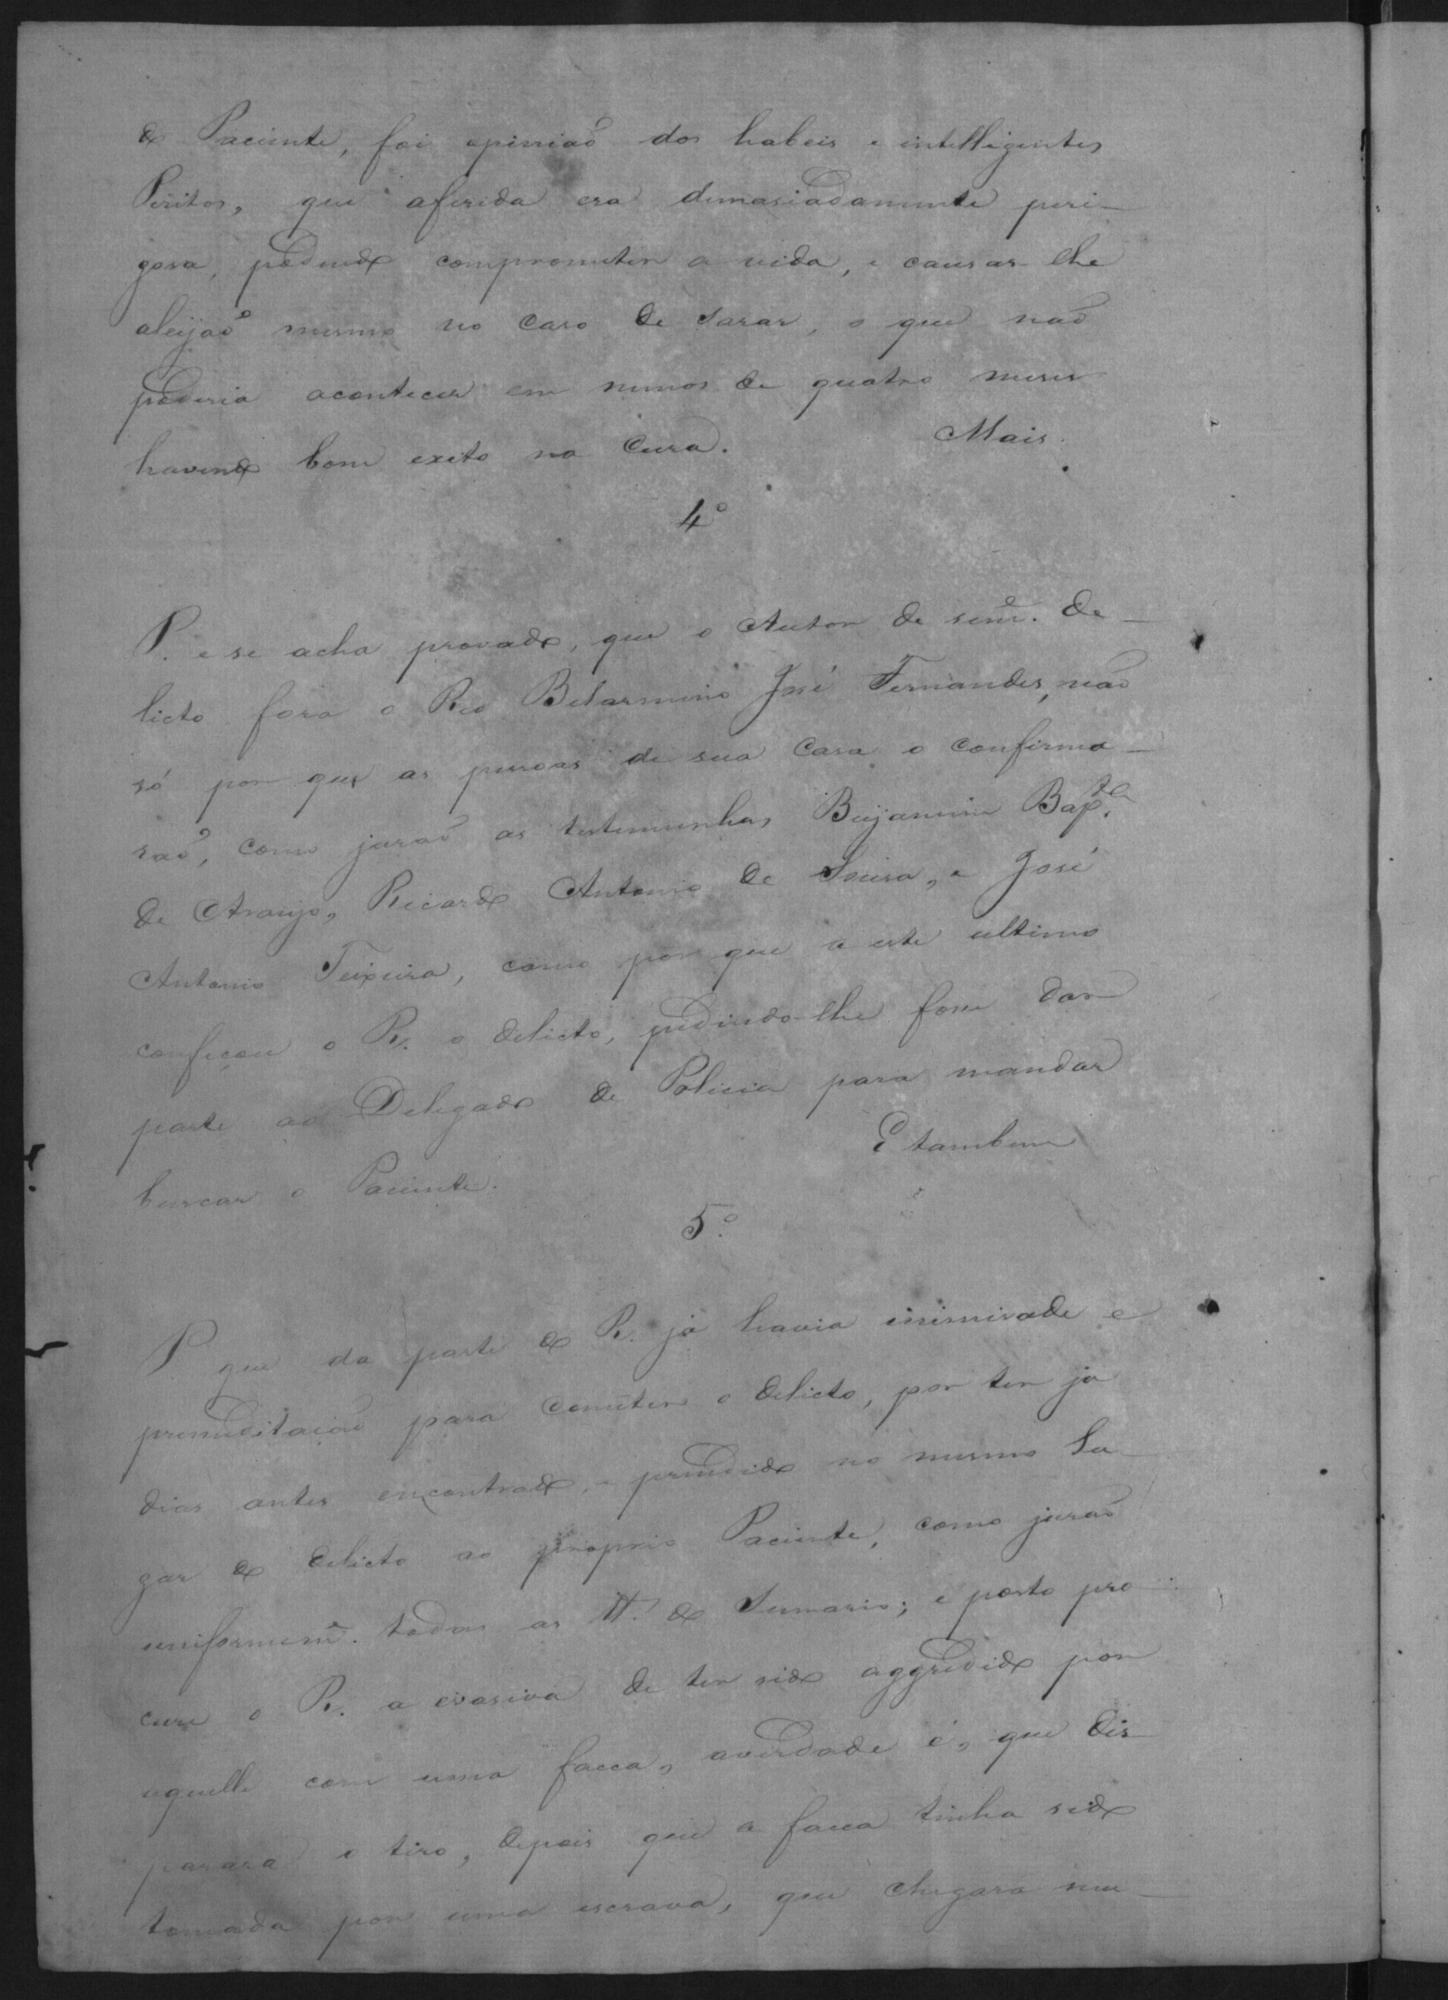 do Paciente, foi opinião dos habeis e intelligentes
Peritos, que aferida era demasiadamente peri-
gosa, podendo comprometer a vida, e causar-lhe
aleijaõ mesmo no caso de sarar, o que naõ
poderia acontecer em menos de quatro meses
havendo bom exito na Cura. Mais
4º
P. e se acha provado, que o Autor de semе. De-
licto fora o Reo Belarmino José Fernandes, naõ
só por que as pessoas de sua Casa o confirma-
raõ, como juraõ as testemunhas Beijamim Bapta.
de Araujo, Ricardo Antonio de Sousa, e José
Antonio Teixeira, como por que a este ultimo
confeçou o R. o delicto, pedindo-lhe fosse dar
parte ao Delegado de Policia para mandar
buscar o Paciente. E tambem
5º
P. que da parte do R. já havia inimisade e
premeditaçaõ para cometer o delicto, por ter já
dias antes encontrado, e prendido no mesmo Lu-
gar do delicto ao proprio Paciente, como juraõ
uniformeme. todas as TT. do Sumario; e posto pro-
cure o R. a evasiva de ter sido aggredido por
aquelle com uma facca, averdade é, que dis-
parara o tiro, depois que a faca tinha sido
tomada por uma escrava, que chegara nes-